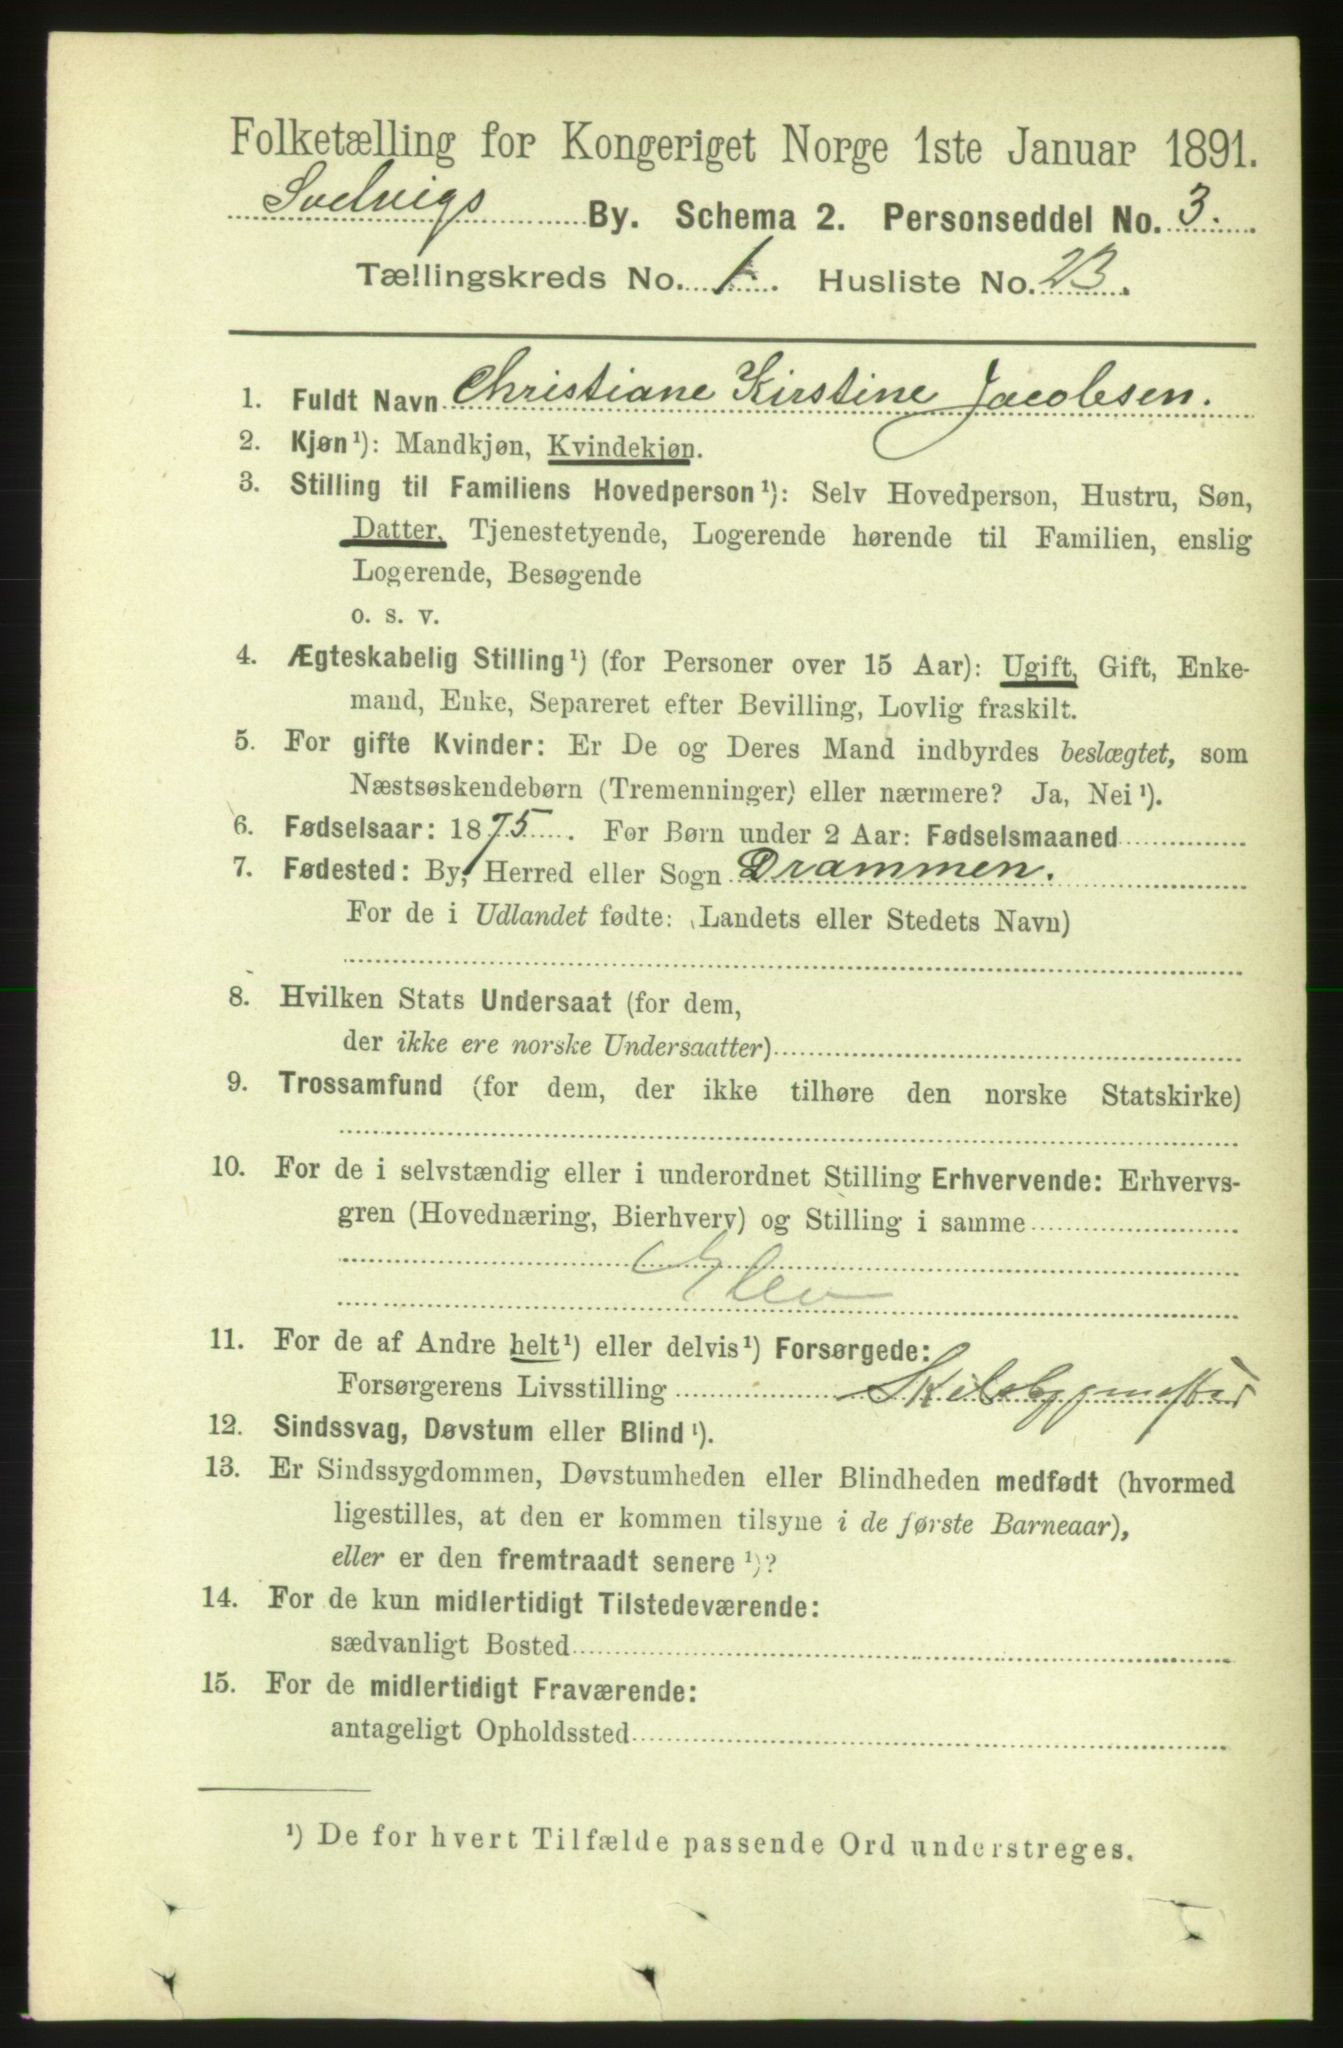 Folketælling for Kongeriget Norge 1ste Januar 1891.
Svelvigs By. Schema 2. Personseddel No. 3.
Tællingskreds No. 1. Husliste No. 23.
1. Fuldt Navn Christiane Kirstine Jacobsen.
2. Kjøn¹): Mandkjøn, Kvindekjøn.
3. Stilling til Familiens Hovedperson¹): Selv Hovedperson, Hustru, Søn,
Datter, Tjenestetyende, Logerende hørende til Familien, enslig
Logerende, Besøgende
o. s. v.
4. Ægteskabelig Stilling¹) (for Personer over 15 Aar): Ugift, Gift, Enke-
mand, Enke, Separeret efter Bevilling, Lovlig fraskilt.
5. For gifte Kvinder: Er De og Deres Mand indbyrdes beslægtet, som
Næstsøskendebørn (Tremenninger) eller nærmere? Ja, Nei¹).
6. Fødselsaar: 1875. For Børn under 2 Aar: Fødselsmaaned
7. Fødested: By, Herred eller Sogn Drammen.
For de i Udlandet fødte: (Landets eller Stedets Navn)
8. Hvilken Stats Undersaat (for dem,
der ikke ere norske Undersaatter)
9. Trossamfund (for dem, der ikke tilhøre den norske Statskirke)
10. For de i selvstændig eller i underordnet Stilling Erhvervende: Erhvervs-
gren (Hovednæring, Bierhverv) og Stilling i samme
Elev
11. For de af Andre helt¹) eller delvis¹) Forsørgede:
Forsørgerens Livsstilling Skibsbygmester
12. Sindssvag, Døvstum eller Blind¹).
13. Er Sindssygdommen, Døvstumheden eller Blindheden medfødt (hvormed
ligestilles, at den er kommen tilsyne i de første Barneaar),
eller er den fremtraadt senere¹)?
14. For de kun midlertidigt Tilstedeværende:
sædvanligt Bosted
15. For de midlertidigt Fraværende:
antageligt Opholdssted
¹) De for hvert Tilfælde passende Ord understreges.